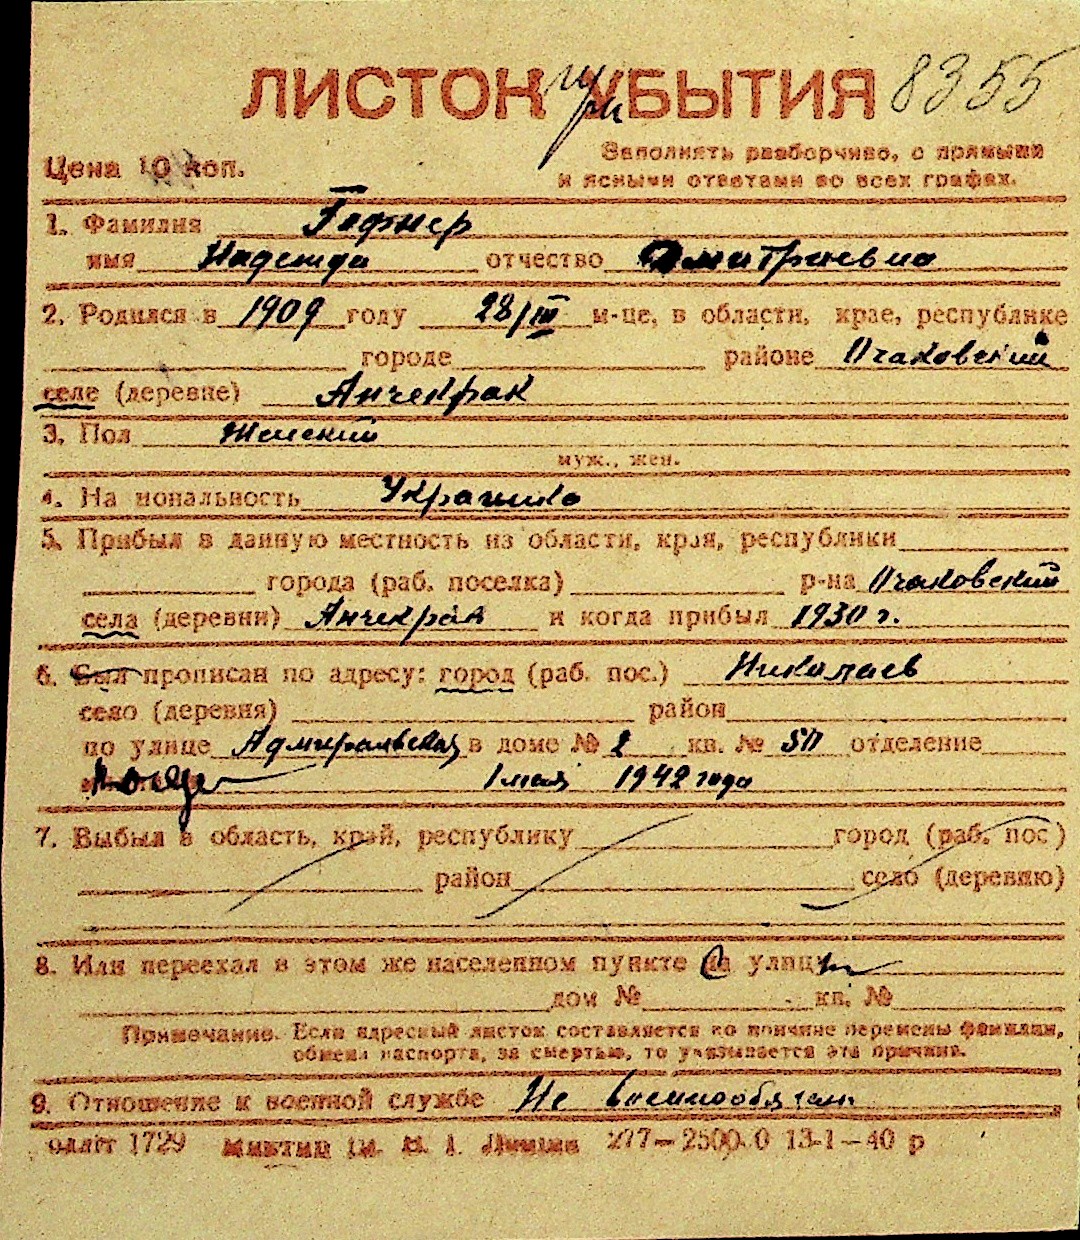 ЛИСТОК УБЫТИЯ при 8355
Цена 10 коп. Заполнять разборчиво, с прямыми
и ясными ответами во всех графах.
1. Фамилия Гофнер
имя Надежда отчество Дмитриевна
2. Родился в 1909 году 28/III м-це, в области, крае, республике
городе районе Очаковский
селе (деревне) Анчекрак
3. Пол Женский
муж., жен.
4. Национальность Украинка
5. Прибыл в данную местность из области, края, республики
города (раб. поселка) р-на Очаковский
села (деревни) Анчекрак и когда прибыл 1930 г.
6. Был прописан по адресу: город (раб. пос.) Николаев
село (деревня) район
по улице Адмиральская в доме № 2 кв. № 50 отделение
1 мая 1942 года
7. Выбыл в область, край, республику город (раб. пос)
район село (деревню)
8. Или переехал в этом же населенном пункте на улицу
дом № кв. №
Примечание. Если адресный листок составляется по причине перемены фамилии,
обмена паспорта, за смертью, то указывается эта причина.
9. Отношение к военной службе Не военнообязан
1729 277—2500.0 13-1—40 р